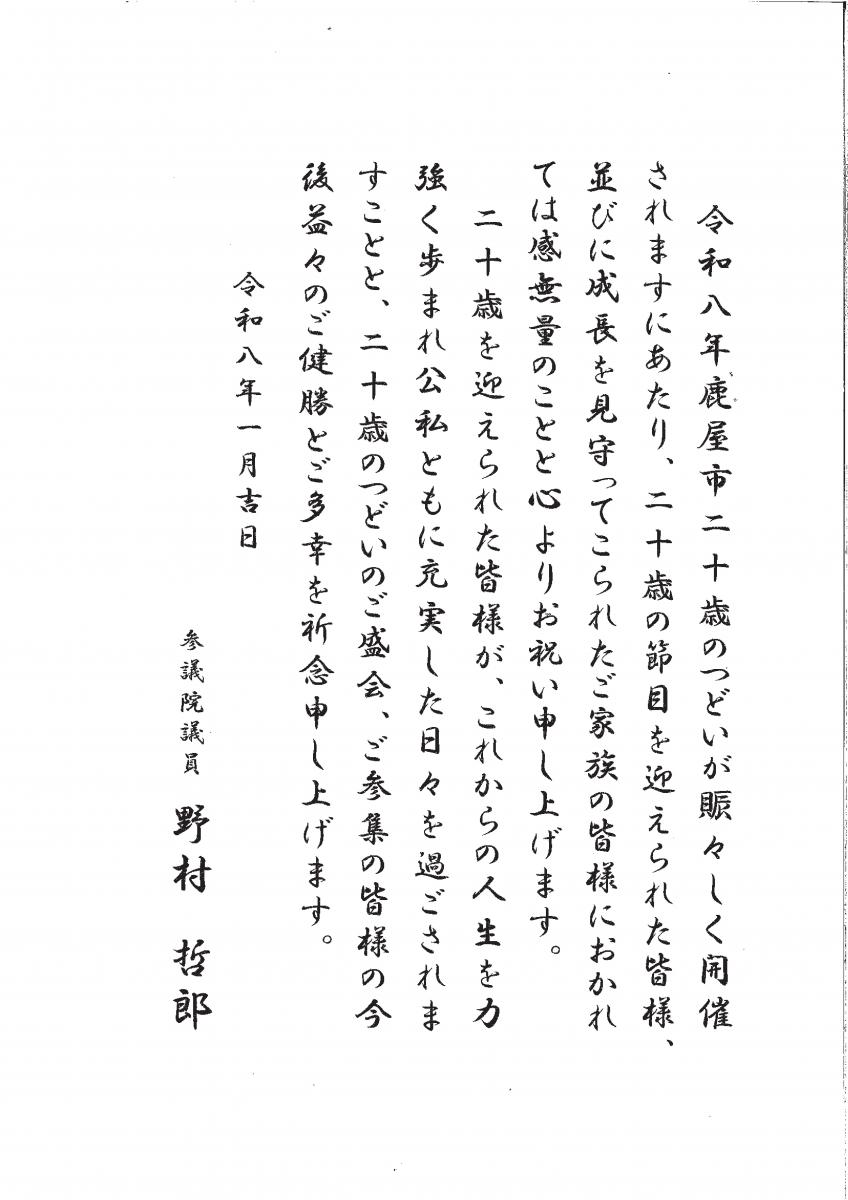 令和八年鹿屋市二十歳のつどいが賑々しく開催
されますにあたり、二十歳の節目を迎えられた皆様、
並びに成長を見守ってこられたご家族の皆様におかれ
ては感無量のことと心よりお祝い申し上げます。
二十歳を迎えられた皆様が、これからの人生を力
強く歩まれ公私ともに充実した日々を過ごされま
すことと、二十歳のつどいのご盛会、ご参集の皆様の今
後益々のご健勝とご多幸を祈念申し上げます。
令和八年一月吉日
参議院議員 野村 哲郎